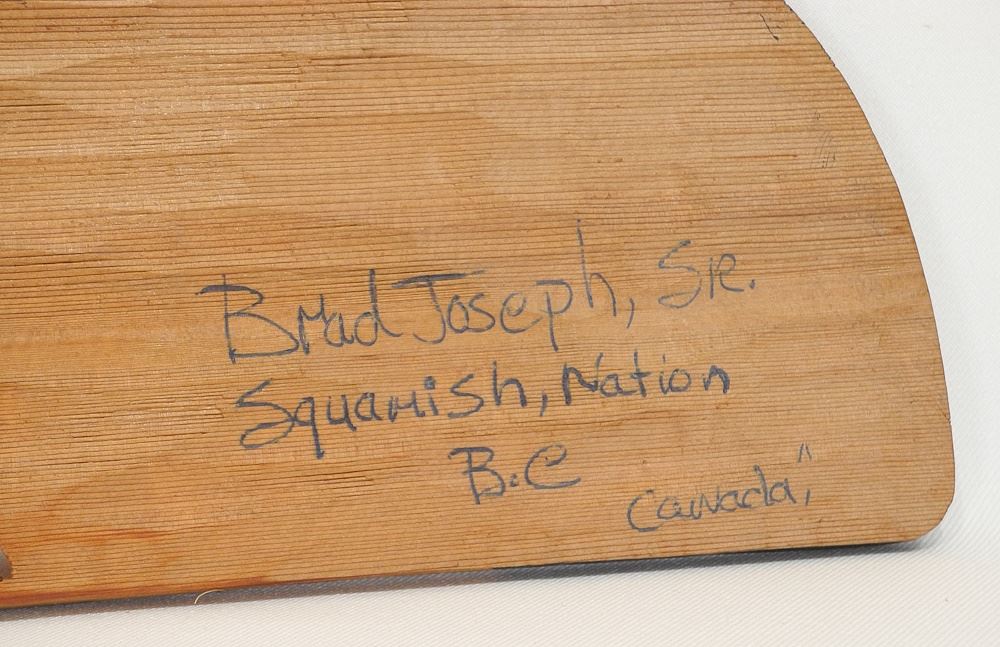 Brad Joseph, Sr.
Squamish, Nation
B.C
Canada,"